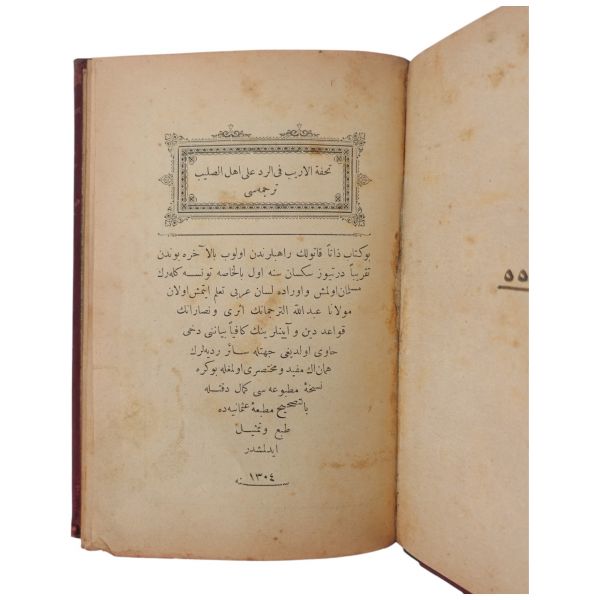 تحفة الاريب فى الرد على اهل الصليب
ترجمه‌سى
بو كتاب ذاتاً قاتولك راهبلرندن اولوب بالآخره بوندن
تقريباً درتيوز سكسان سنه اول بالخاصه تونسه كله‌رك
مسلمان اولمش و اوراده لسان عربى تعلم ايتمش اولان
مولانا عبدالله الترجمانك اثرى و نصارانك
قواعد دين و آيينلرينك كافياً بياننى دخى
حاوى اولديغى جهتله سائر رديه‌لرك
همان اك مفيد و مختصرى اولمغله بو كره
نسخۀ مطبوعه سى كمال دقتله
بالتصحيح مطبعۀ عثمانيه‌ده
طبع و تمثيل
ايدلمشدر
سنه ١٣٠٤
٥٥